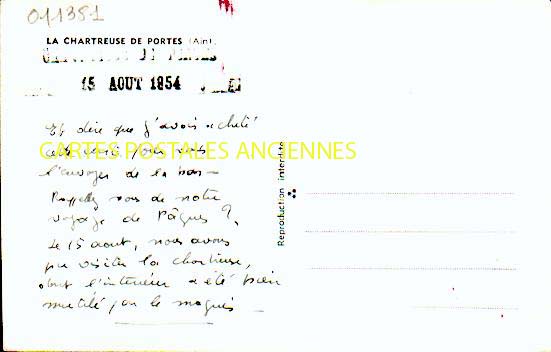 011381
LA CHARTREUSE DE PORTES (Ain).
15 AOUT 1954
Et dire que j'avais acheté
cette carte pour vous
l'envoyer de là bas —
Rappelez vous de notre
voyage de Pâques ?
Le 15 août, nous avons
pu visiter la chartreuse,
dont l'intérieur a été bien
mutilé par le maquis
CARTES POSTALES ANCIENNES
Reproduction interdite